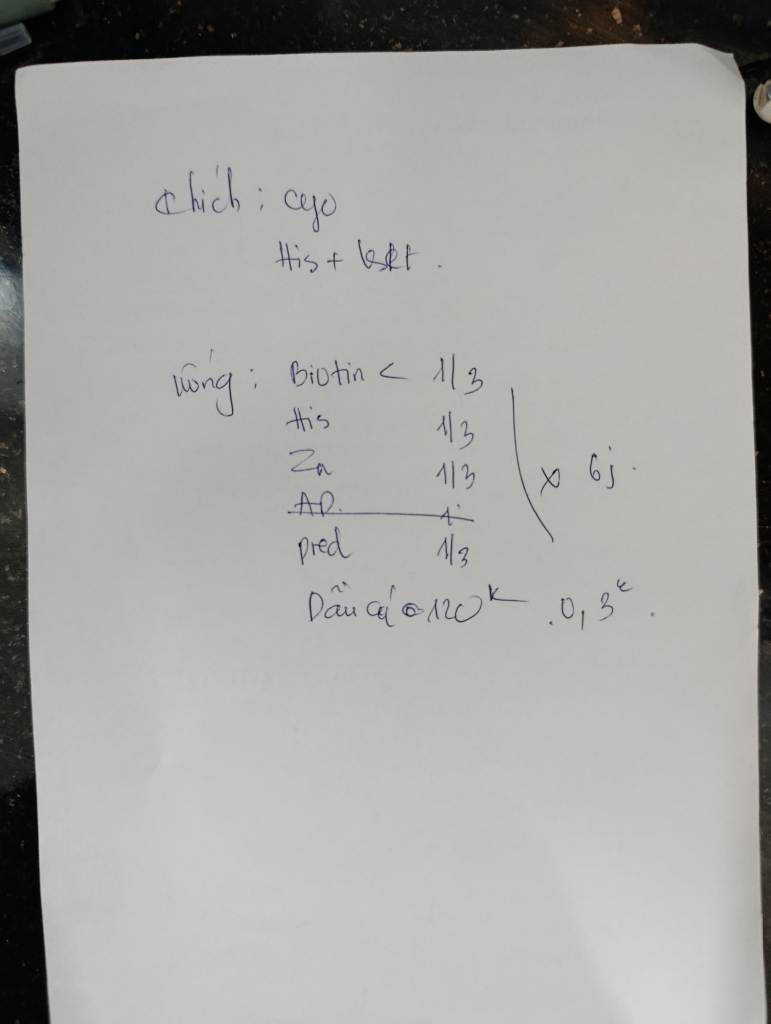 chích : cyo
His +
uống : Biotin < 1/3
His 1/3
Zn 1/3
AD. 1
pred 1/3
x 6j.
Dầu cá 120k .0,3